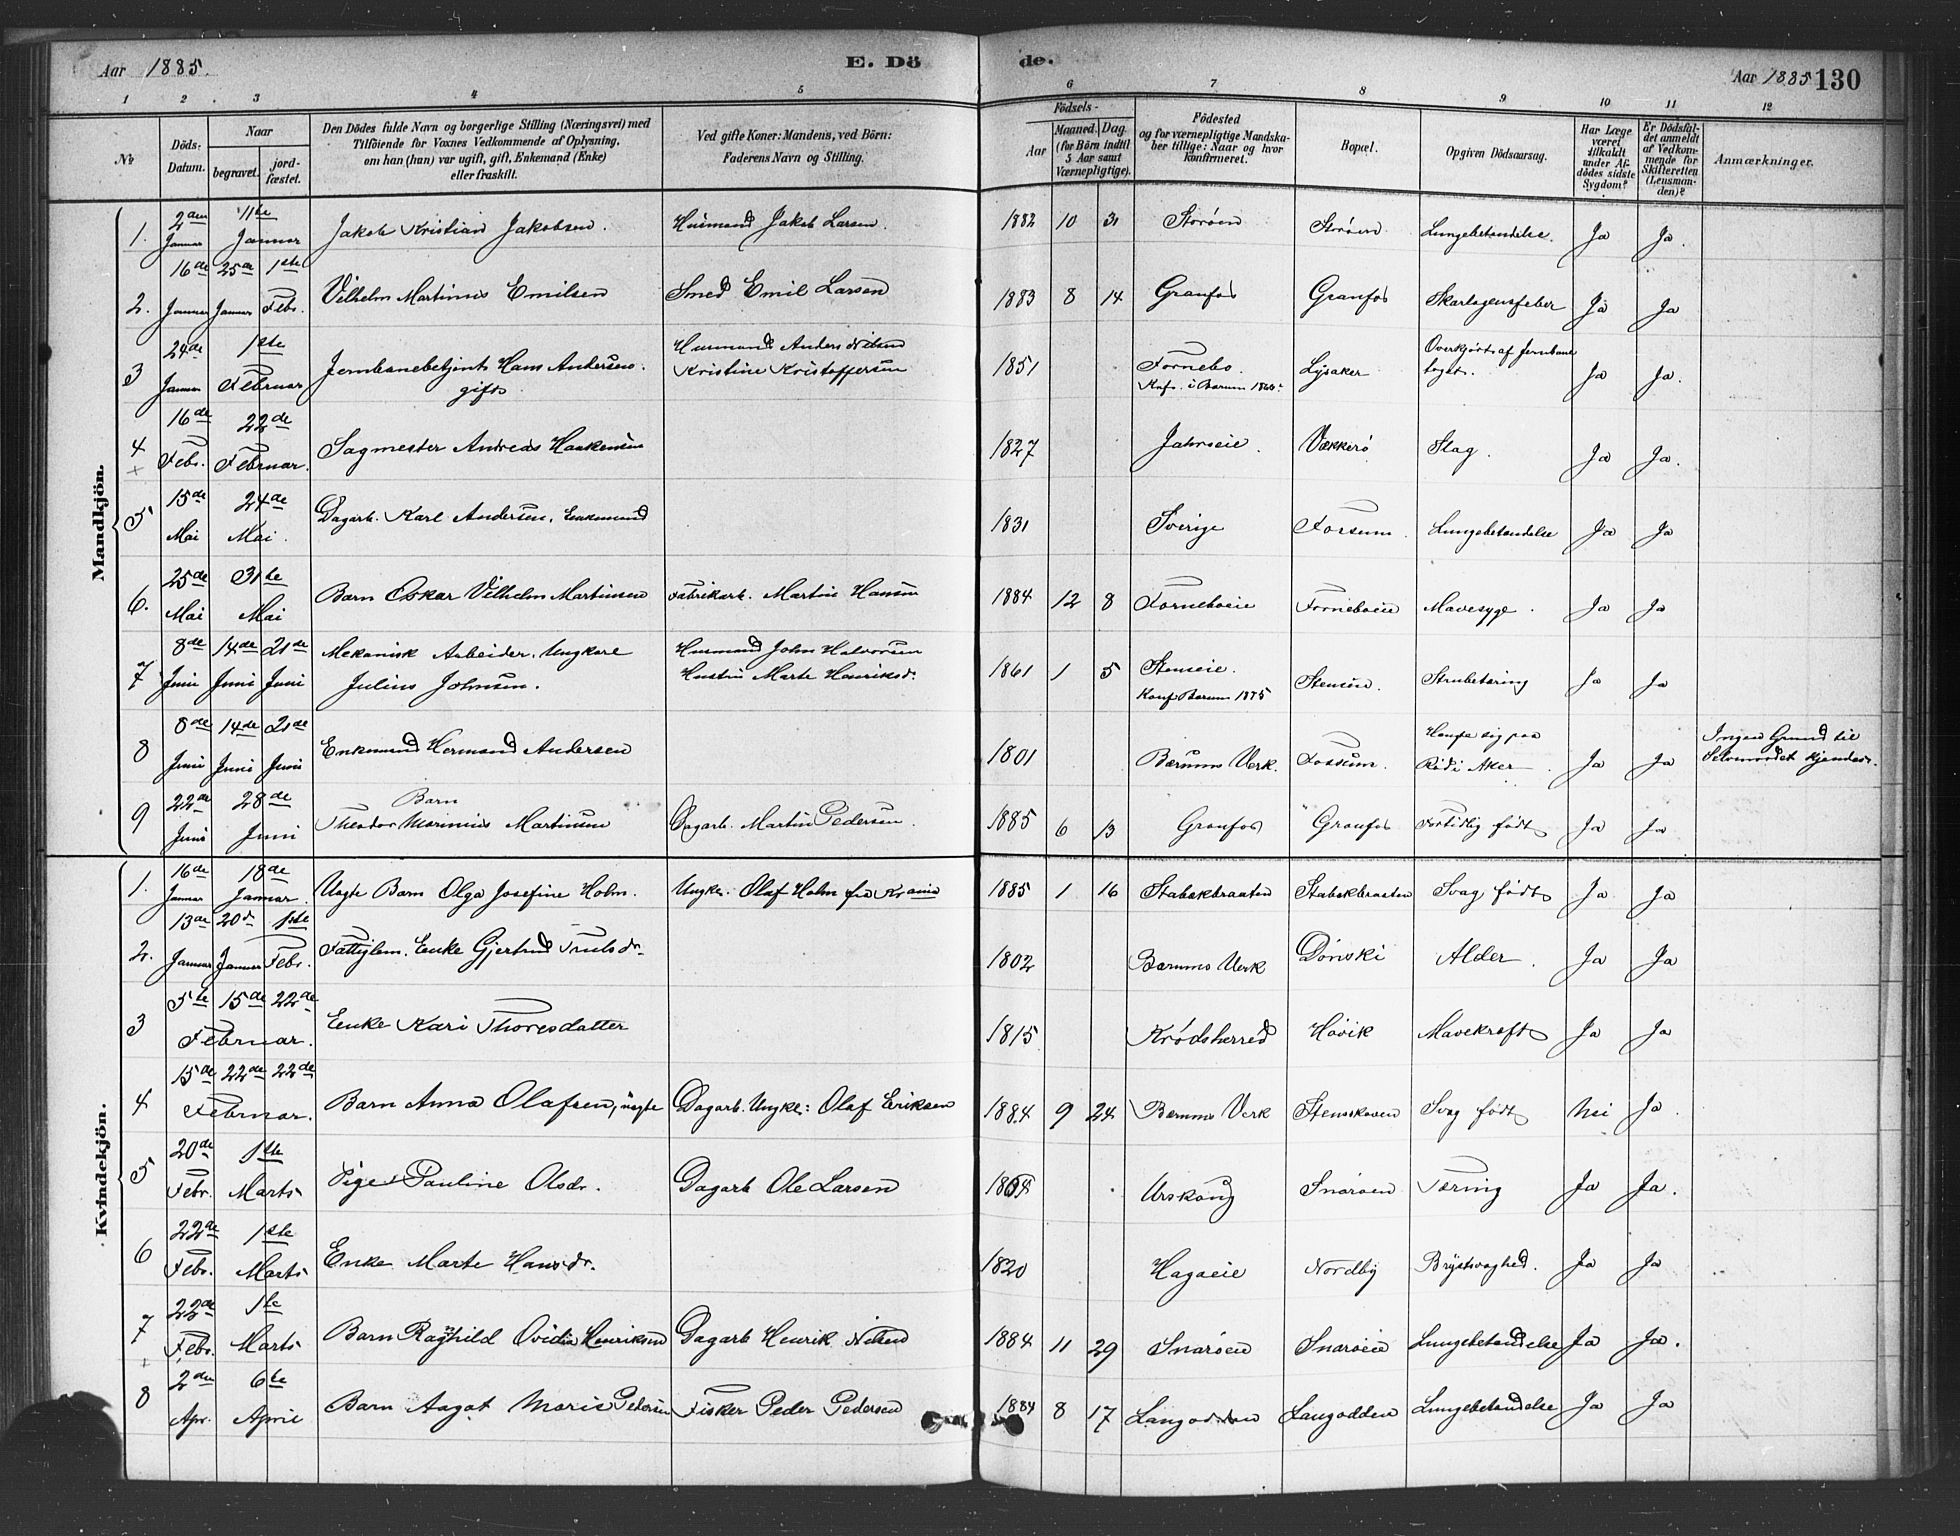 Aar 1885.
E. Dö
de.
Aar 1885 130
1 2. 3 4 5 6 7 8 9 10 11 12
№
Döds-Datum.
Naar
begravet.
jord-fæstet.
Den Dödes fulde Navn og borgerlige Stilling (Næringsvei) med
Tilföiende for Voxnes Vedkommende af Oplysning,
om han (hun) var ugift, gift, Enkemand (Enke)
eller fraskilt.
Ved gifte Koner: Mandens, ved Börn:
Faderens Navn og Stilling.
Födsels-
Aar
Maaned. Dag
(for Börn indtil
5 Aar samt
Værnepligtige).
Födested
og for værnepligtige Mandska-
ber tillige: Naar og hvor
konfirmeret.
Bopæl.
Opgiven Dödsaarsag.
Har Læge
været
tilkaldt
under Af-
dödes sidste
Sygdom?
Er Dödsfal-
det anmeldt
af Vedkom-
mende for
Skifteretten
(Lensman-
den)?
Anmærkninger.
Mandkjön.
1. 2den Januar 11te Januar Jakob Kristian Jakobsen. Husmand Jakob Larsen. 1882 10 31 Storöen Storöen Lungebetændelse. Ja Ja.
2. 16de Januar 25de Januar 1ste Febr. Vilhelm Martinius Emilsen Smed Emil Larsen 1883 8 14 Granfos Granfos Skarlagensfeber Ja Ja
3 24de Januar 1ste Februar Jernbanebetjent Hans Andersen. gift Husmand Anders Nilsen
Kristine Kristoffersen 1851 Fornebo.
Konf. i Bærum Lysaker Overkjört af Jernbane
toget. Ja Ja.
4 16de Febr. 22de Februar. Sagmester Andreas Haakensen 1827 Jahrseie. Vækkerö Slag. Ja Ja.
5 15de Mai 24de Mai. Dagarb. Karl Andersen, Enkemand 1831 Sverige Fossum. Lungebetændelse Ja Ja
6. 25de Mai 31te Mai Barn Oskar Vilhelm Martinsen Fabrikarb. Martin Hansen 1884 12 8 Forneboeie Forneboeie Mavesyge. Ja Ja
7 8de Juni 14de Juni 21de Juni Mekanisk Arbeider. Ungkare
Julius Johnsen. Husmand John Halvorsen
Hustru Marte Henriksd. 1861 1 5 Stenseie.
Konf Bærum 1875 Stensen. Strubetæring Ja Ja
8 8de Juni 14de Juni 21de Juni Enkemand Herman Andersen 1801 Bærums Verk. Fossum. Hængte sig paa
Röd i Aker Ja Ja Ingen Grund til
Selvmordet kjendes.
9 22de Juni 28de Juni Barn
Theodor Marinius Martinsen Dagarb. Martin Pedersen. 1885 6 13 Granfos Granfos Fortidlig födt Ja Ja
Kvindekjön.
1. 16de Januar 18de Januar. Uægte Barn Olga Josefine Holm. Ungk. Olaf Holm fra Krania 1885 1 16 Stabekbraaten Stabekbraaten Svag födt Ja Ja
2. 13de Januar 20de Januar 1ste Febr. Fattiglem. Enke Gjertrud Trulsdr. 1802 Bærums Verk Dönski Alder. Ja Ja
3 5te 15de 22de Februar. Enke Kari Thoresdatter 1815 Krödsherred Hövik Mavekræft Ja Ja
4 15de 22de 22de Februar. Barn Anna Olafsen, uægte Dagarb. Ungk: Olaf Eriksen 1884 9 24 Bærums Verk Stensskoven Svag födt Nei Ja.
5 20de Febr. 1ste Marts Pige Pauline Olsdr. Dagarb Ole Larsen 1864 Urskoug Snaröen Tæring Ja Ja.
6 22de Febr. 1ste Marts Enke Marte Hansdr. 1820 Hagaeie Nordby Brystsvaghed. Ja Ja
7 22de Febr. 1ste Marts Barn Ragnhild Ovidia Henriksen Dagarb Henrik Nilsen 1884 11 29 Snaröen Snaröen Lungebetændelse Ja Ja.
8 2den Apr. 6te April Barn Aagot Marie Pedersen Fisker Peder Pedersen 1884 8 17 Langodden Langodden Lungebetændelse Ja Ja